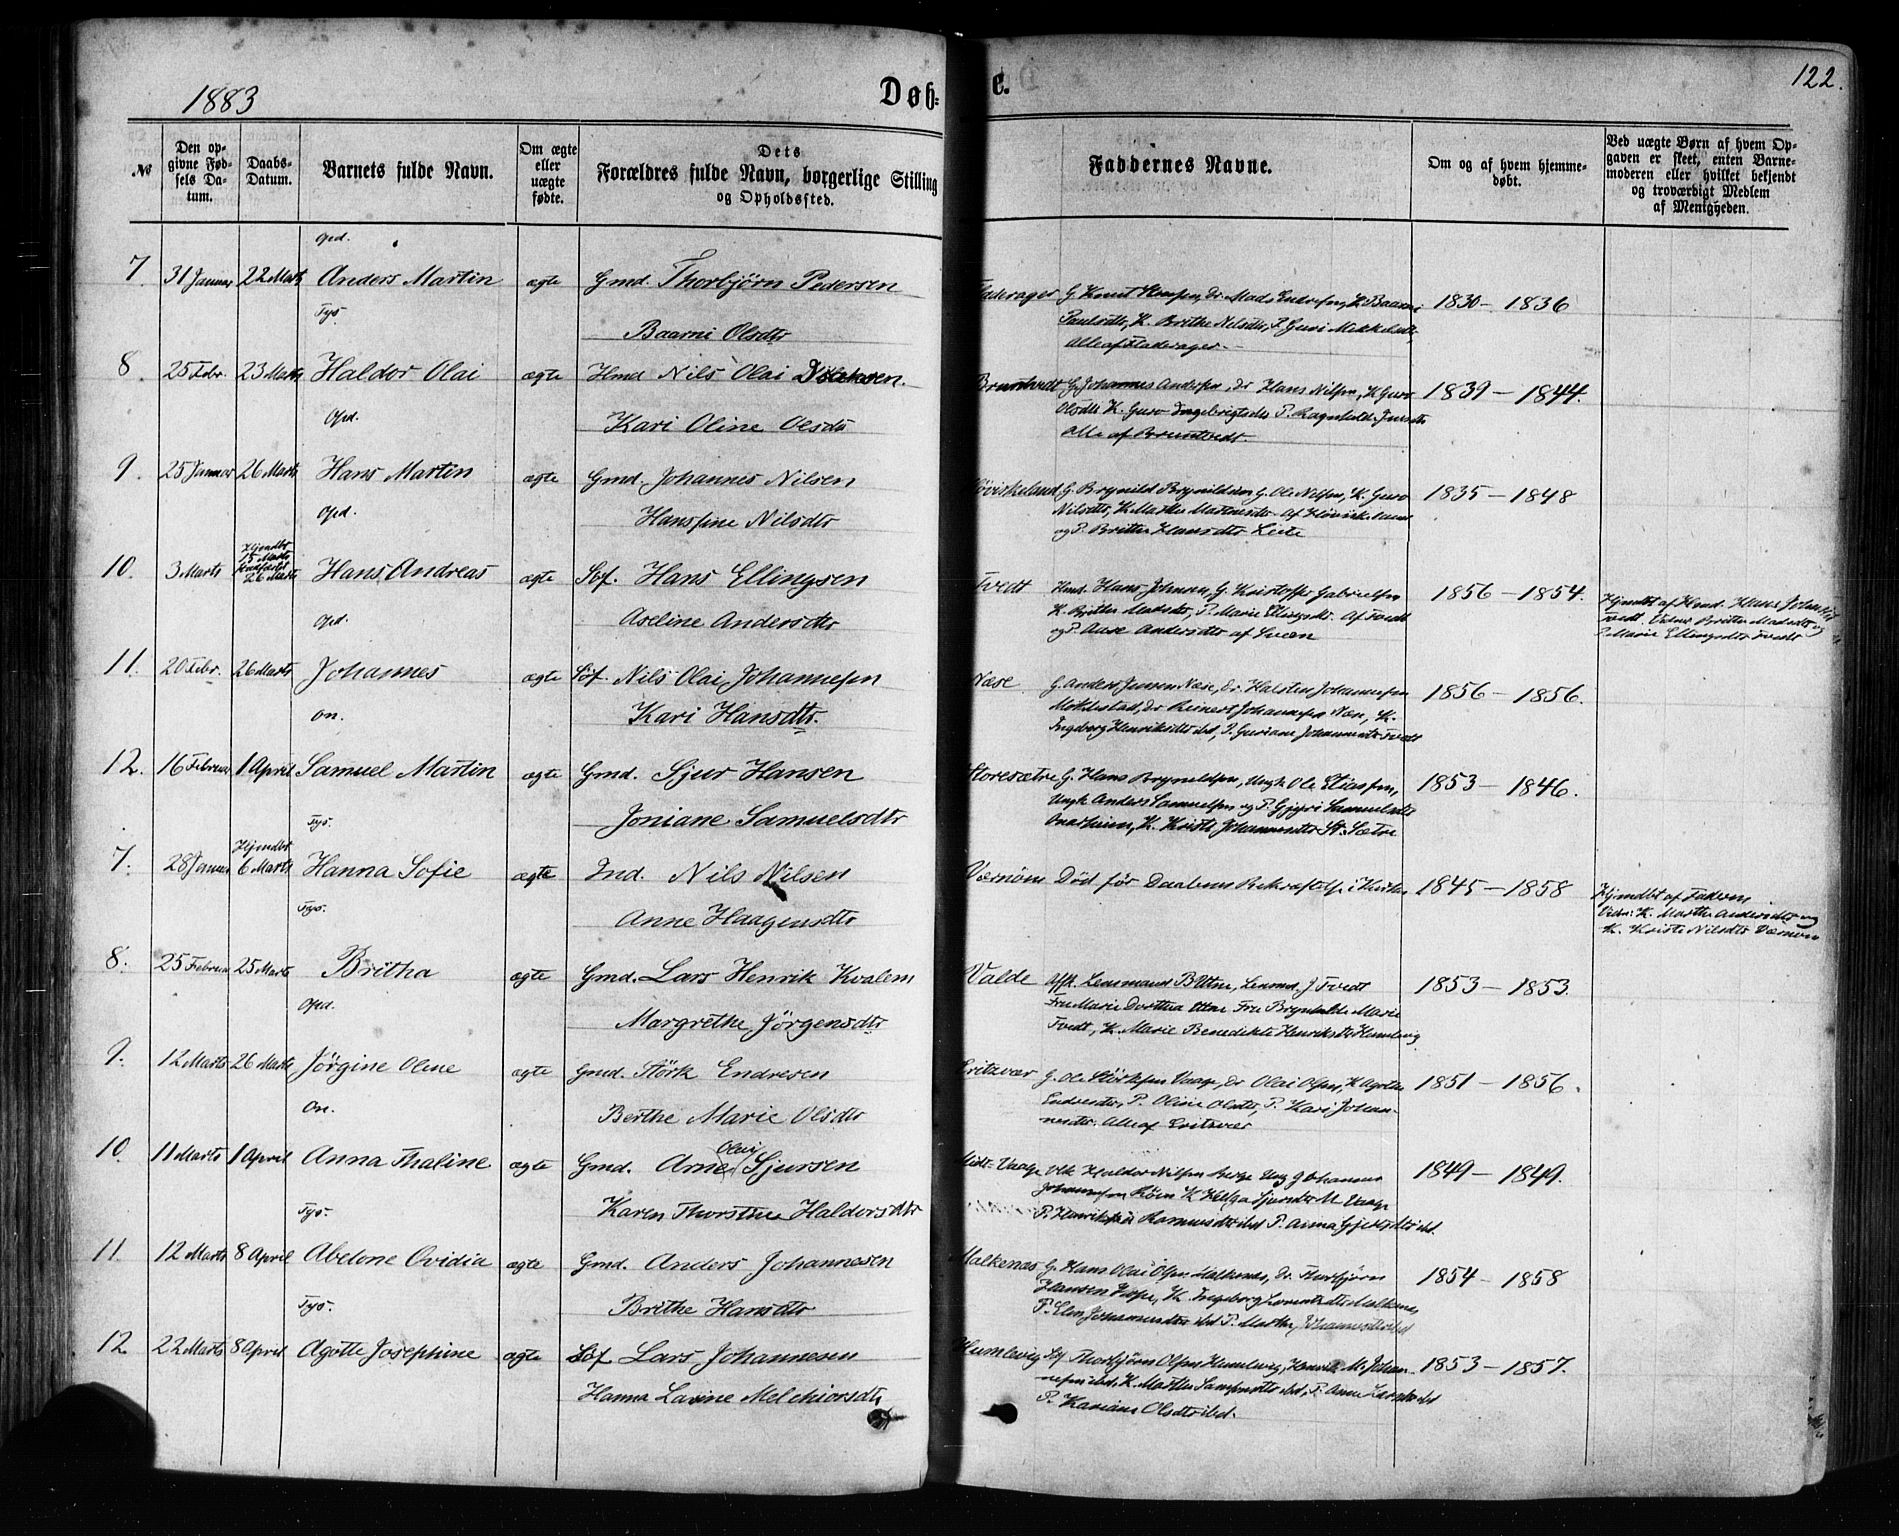 1883
Døb-
e.
122.
№
Den opgivne Fødsels Datum.
Daabs-Datum.
Barnets fulde Navn.
Om ægte eller uægte fødte.
Dets Forældres fulde Navn, borgerlige Stilling og Opholdssted.
Faddernes Navne.
Om og af hvem hjemmedøbt.
Ved uægte Børn af hvem Opgaven er skeet, enten Barnemoderen eller hvilket bekjendt og troværdigt Medlem af Menigheden.
Opd.
7. 31 Januar 22 Marts Anders Martin ægte Gmd. Thorbjørn Pedersen
Baarni Olsdtr
Fladerager G. Knut
Paulsdtr, K. Brithe Nilsdtr, P. Guri
Alle af Fladerager.
1830 - 1836
Fys.
8. 25 Febr. 23 Marts Haldor Olai ægte Hmd Nils Olai
Kari Oline Olsdtr
Bremtvedt G. Johannes Andersen, Dr Hans Nilsen, K. Guro
Olsdtr K. Guro Ingebrigtsdtr P. Ragnhilde
Alle af Bremtvedt
1839 - 1844.
Opd.
9. 25 Januar 26 Marts Hans Martin ægte Gmd. Johannes Nilsen
Hansine Nilsdtr
G. Brynild Brynildsen G. Ole Nilsen, K. Guro
Nilsdtr, K. Marthe
og P. Brithe Hansdtr Leite
1835 - 1848
Opd.
10. 3 Marts Hjmdbt 15 Marts 26 Marts Hans Andreas ægte Sof. Hans Ellingsen
Aseline Andersdtr
Tvedt Hmd. Hans Johnsen, G. Kristoffer Gabrielsen
K. Brithe Madsdtr, P. Marie Ellingsdtr. Af Tvedt
og P. Anne Andersdtr af
1856 - 1854.
Hjmdbt af Hmd. Hans
Tvedt. Vidner Brithe Madsdtr og
P. Marie Ellingsdtr Tvedt
Opd.
11. 20 Febr. 26 Marts Johannes ægte Sof. Nils Olai Johannesen
Kari Hansdtr.
Næse G. Anders Jensen Næse, Dr. Halsten Johannesen
Møklestad, Dr Reinert Johannesen Næse, K.
Ingeborg Henriksdtr ibd, P. Guriane Johannesdtr Tvedt
1856 - 1856.
On.
12. 16 Februar 1 April Samuel Martin ægte Gmd. Sjur Hansen
Joniane Samuelsdtr
Storesætre G. Hans Brynildsen, Ungk. Ole Eliassen,
Ungk Anders Samuelsen og P. Gjyri Samuelsdtr
K. Kristi Johannesdtr St. Sætre
1853 - 1846.
Fys.
7. 28 Januar Hjmdbt 6 Marts Hanna Sofie ægte Ind. Nils Nilsen
Anne Haagensdtr
Værnøm Død før Daabens Bekræftelse i Kirken
1845 - 1858
Hjmdbt af Faderen
Vidn: K. Marthe Andersdtr og
K. Kristi Nilsdtr Værnøm
Fys.
8. 25 Februar 25 Marts Britha ægte Gmd. Lars Henrik Kvalem
Margrethe Jørgensdtr
Valde Lensmand B. Uttne, Lensmd. J Tvedt
Fru Marie Dorthea Uttne Fru Brynhilde Marie
Tvedt, K. Marie Benedikte Henriksdtr Humlevig
1853 - 1853.
Opd.
9. 12 Marts 26 Marts Jørgine Oline ægte Gmd. Størk Endresen
Berthe Marie Olsdtr
Eritzvær G. Ole Størksen Vaage, Dr Olai Olsen, K Agathe
Endresdtr, P. Oline Olsdtr, P. Kari Johan-
nesdtr. Alle af Eritzvær
1851 - 1856.
On.
10. 11 Marts 1 April Anna Thaline ægte Gmd. Arne Olai Sjursen
Karen Thorstine Haldorsdtr
Midt-Vaage Haldor Nilsen Berge Ung Johannes
Johannesen K Helga Sjursdtr M. Vaage
P. Henrikke Rasmusdtr ibd P. Anna Gjertsdtr ibd.
1849 - 1849.
Fys.
11. 12 Marts 8 April Abelone Ovidia ægte Gmd. Anders Johannesen
Brithe Hansdtr
Malkenæs G. Hans Olai Olsen Malkenæs, Dr. Thorbjørn
Hansen K. Ingeborg Malkenæs,
P. Elen Johannesdtr ibd P. Marthe Johannesdtr ibd
1854 - 1858
Fys.
12 22 Marts 8 April Agatte Josephine ægte Sof Lars Johannesen
Hanna Lavine Melchiorsdtr
Humlevig Sof Thorbjørn Olsen Humlevig, Henrik M. Johan-
nesen ibd. K. Marthe ibd, P. Anne Larsdtr ibd
P. Kariane Olsdtr ibd.
1853 - 1857.